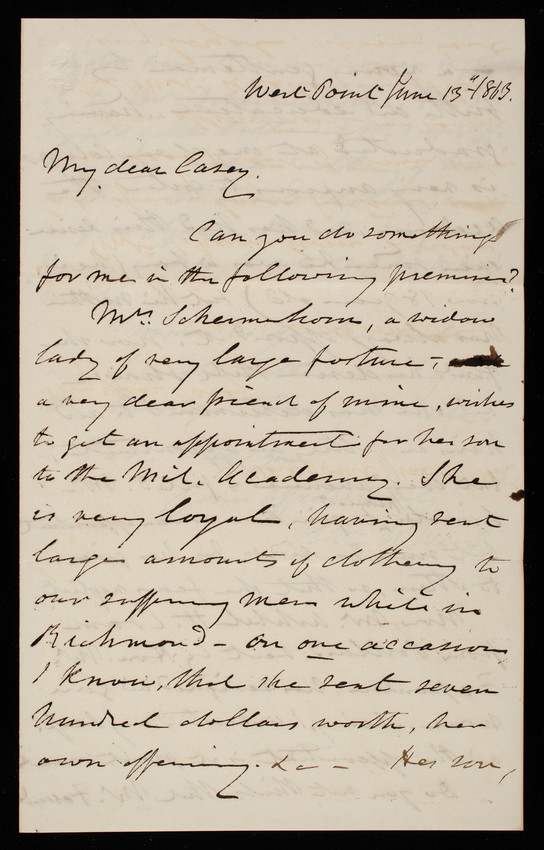 West Point June 13th/1863.
My dear Casey.
Can you do something
for me in the following premises?
Mrs. Schermerhorn, a widow
lady of very large fortune -,
a very dear friend of mine, wishes
to get an appointment for her son
to the Mil. Academy. She
is very loyal, having sent
large amounts of clothing to
our suffering men while in
Richmond - on one occasion
I know, that she sent seven
hundred dollars worth, her
own offering. &c - Her son,